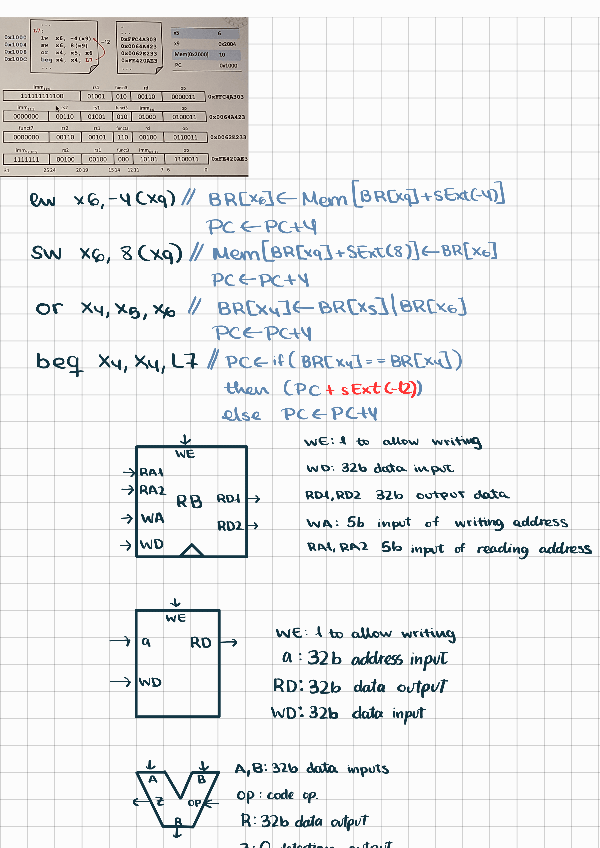 L7: ...
0x1000 lw x6, -4(x9)
0x1004 sw x6, 8(x9)
0x1008 or x4, x5, x6
0x100C beq x4, x4, L7
-12
...
0xFFC4A303
0x0064A423
0x0062E233
0xFE420AE3
x5 6
x9 0x2004
Mem[0x2000] 10
PC 0x1000
rs1 funct3 rd op
111111111100 01001 010 00110 0000011 0xFFC4A303
rs2 rs1 funct3 op
0000000 00110 01001 010 01000 0100011 0x0064A423
funct7 rs2 rs1 funct3 rd op
0000000 00110 00101 110 00100 0110011 0x0062E233
rs2 rs1 funct3 op
1111111 00100 00100 000 10101 1100011 0xFE420AE3
lw x6, -4(x9) // BR[x6]← Mem[BR[x9]+SExt(-4)]
PC ← PC+4
SW x6, 8(x9) // Mem[BR[x9]+SExt(8)]←BR[x6]
PC ← PC+4
or x4, x5, x6 // BR[x4]←BR[x5]|BR[x6]
PC←PC+4
beq x4, x4, L7 // PC←if(BR[x4]==BR[x4])
then (PC + sExt(-12))
else PC←PC+4
WE
RA1
RA2
RB
RD1
WA
RD2
WD
WE: 1 to allow writing
WD: 32b data input
RD1, RD2 32b output data
WA: 5b input of writing address
RA1, RA2 5b input of reading address
WE
a RD
WD
WE: 1 to allow writing
a: 32b address input
RD: 32b data output
WD: 32b data input
A B
Z OP
R
A, B: 32b data inputs
OP: code op.
R: 32b data output